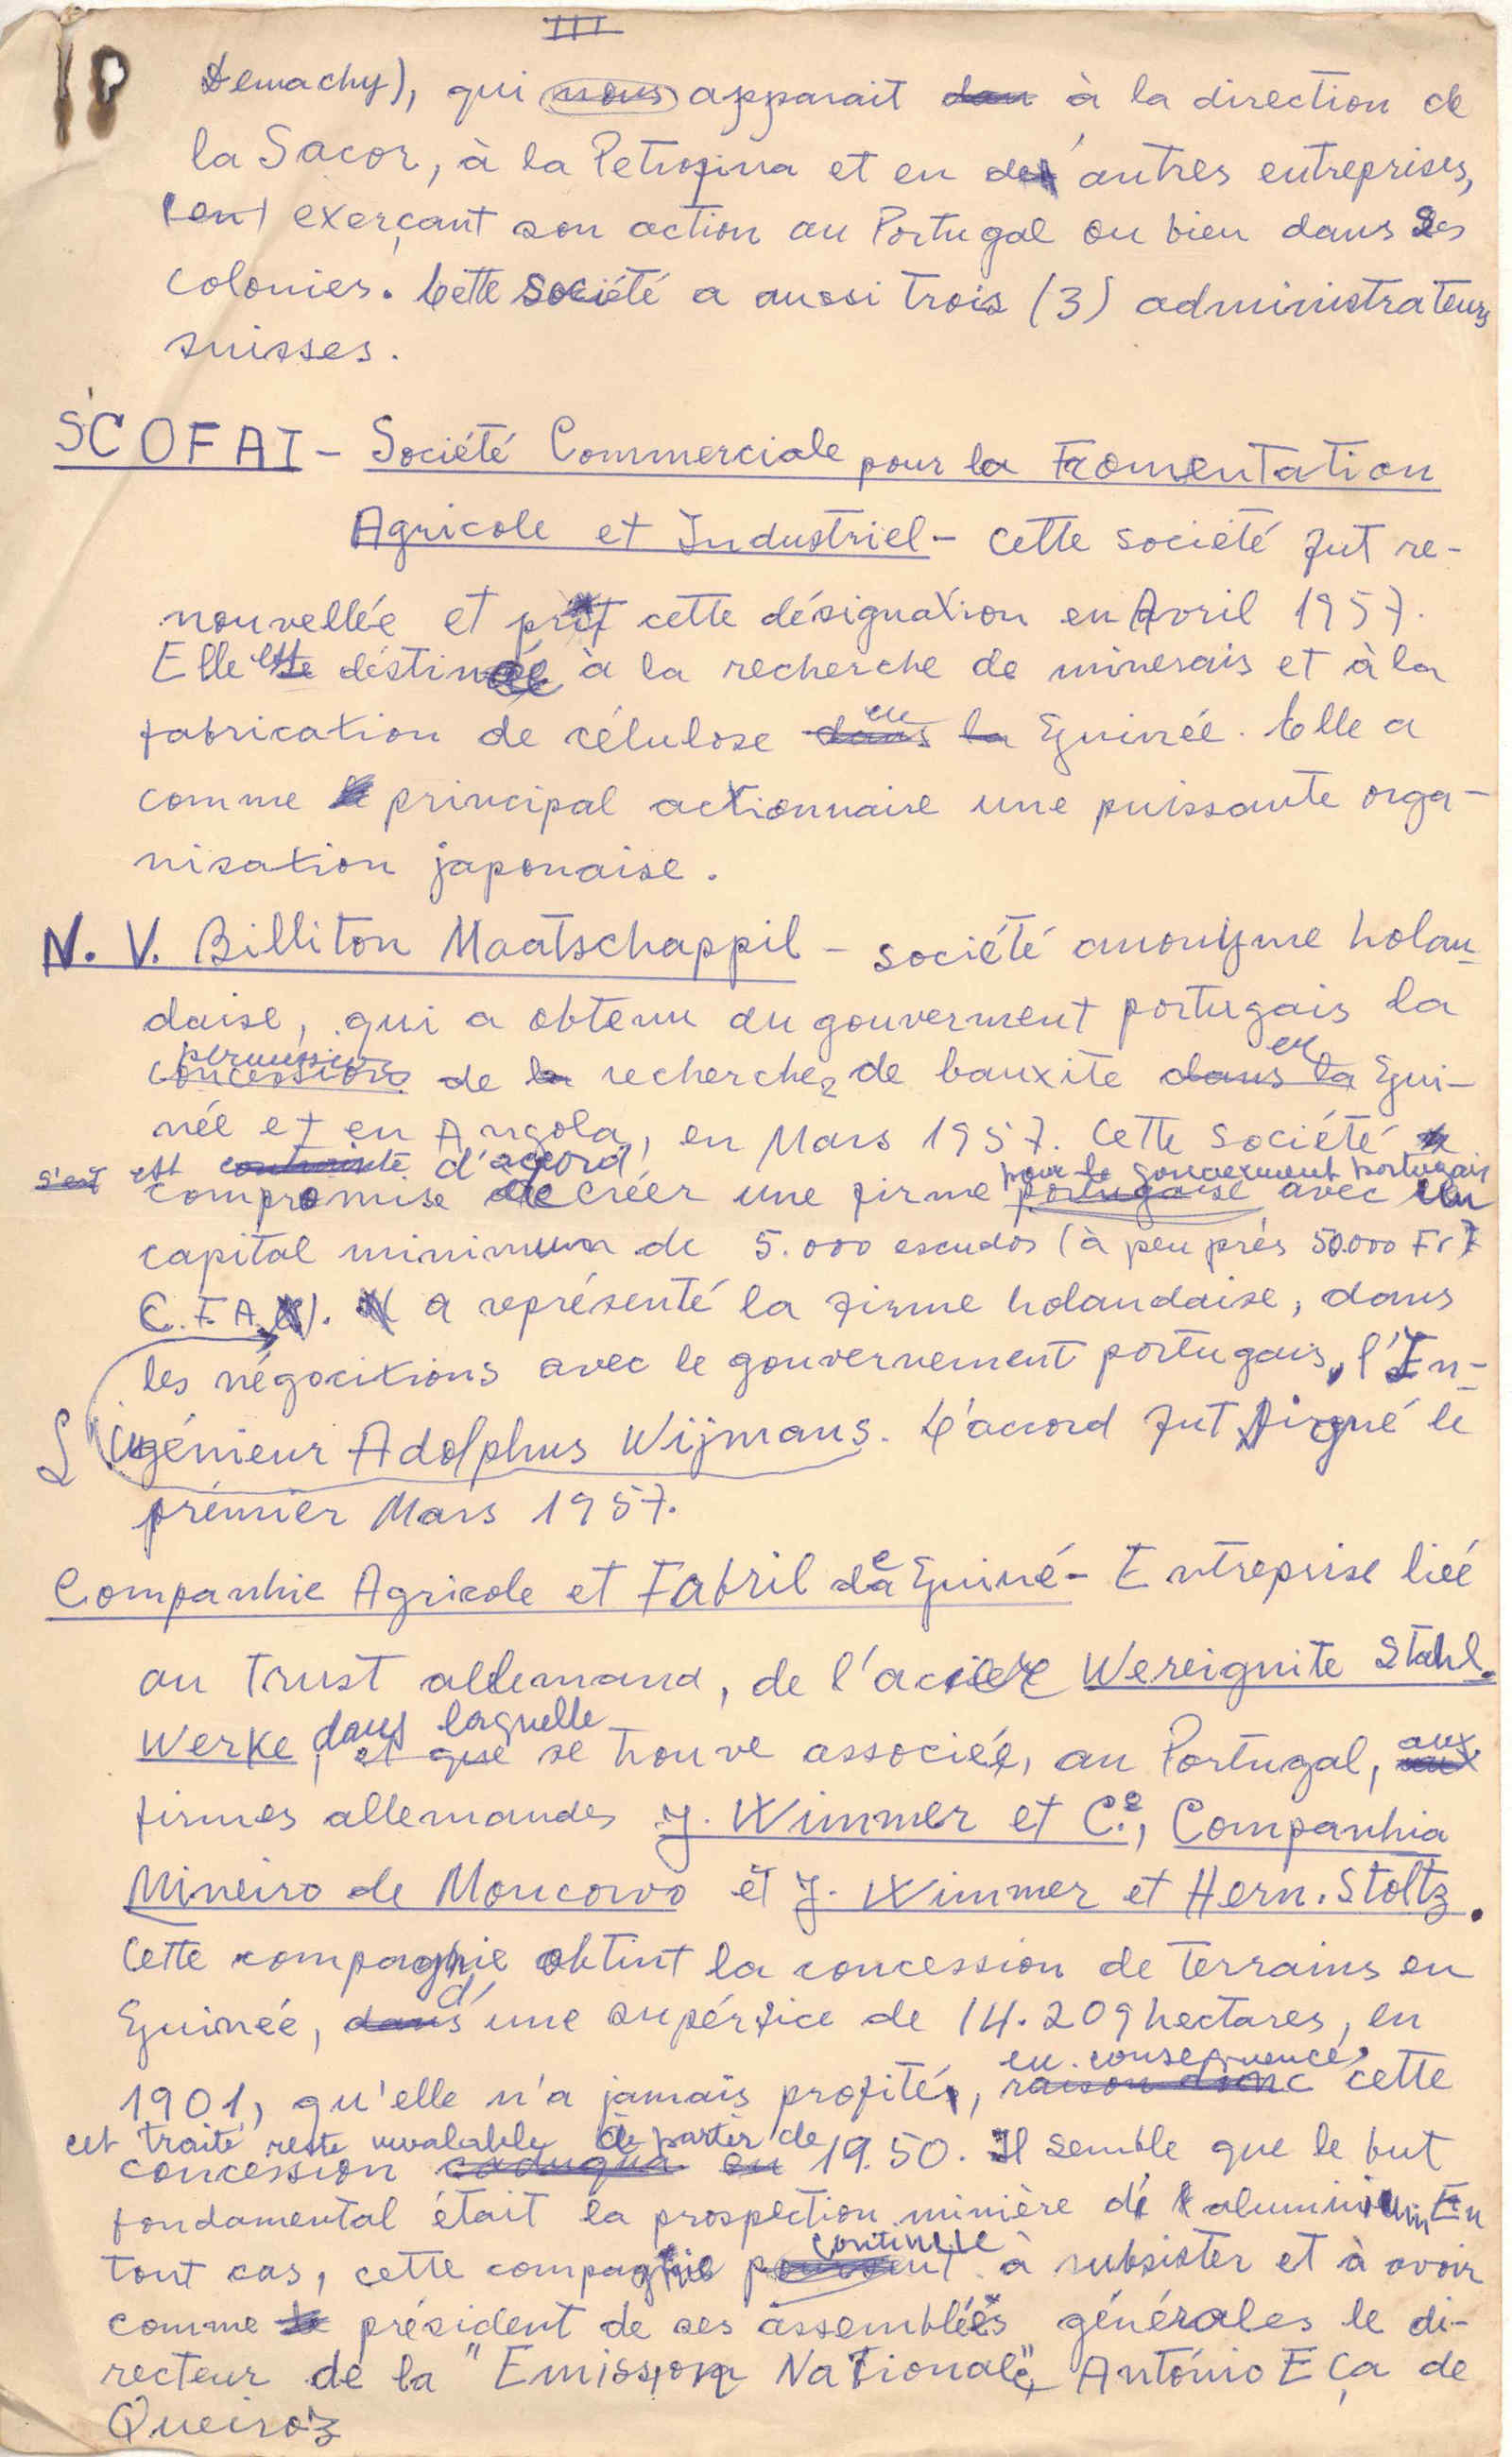 III
Demachy), qui nous apparait dan à la direction de
la Sacor, à la Petrofina et en des autres entreprises,
(en) exerçant son action au Portugal ou bien dans ses
colonies. Cette société a aussi trois (3) administrateurs
suisses.
SCOFAI - Société Commerciale pour la Fromentation
Agricole et Industriel - cette société fut re-
nouvellée et prit cette désignation en Avril 1957.
Elle est déstinée à la recherche de minerais et à la
en
fabrication de célulose dans la Guinée. Celle a
comme le principal actionnaire une puissante orga-
nisation japonaise.
N. V. Billiton Maatschappil - société anonyme holan-
daise, qui a obtenu du gouverment portugais la
permission en
concession de la recherches de bauxite dans la Gui-
née et en Angola, en Mars 1957. Cette société
s'est est contrainte d'acord pour le gouvernment portugais
compromise de créer une firme portugaise avec un
capital minimum de 5.000 escudos (à peu prés 50.000 Fr
C.F.A.). a représenté la firme holandaise, dans
les négocitions avec le gouvernement portugais, l'In-
L'ingénieur Adolphus Wijmans. L'accord fut signé le
prémier Mars 1957.
Companhie Agricole et Fabril de Guiné - Entreprise liéé
au Trust allemand, de l'acier Wereignite Stahl-
dans laquelle
Werke, et que se trouve associéé, au Portugal, aux
firmes allemandes J. Wimmer et C.ª, Companhia
Mineiro de Moncorvo et J. Wimmer et Hern. Stoltz.
Cette compagnie obtint la concession de terrains en
d'
Guinéé, dans une supérfice de 14.209 hectares, en
en consequence,
1901, qu'elle n'a jamais profité, raison donc cette
cet traité reste unvalable à partir de
concession caduqua en 1950. Il semble que le but
fondamental était la prospection minière de l'aluminium. En
continue
tout cas, cette compagnie à subsister et à avoir
comme le président de ses assembléés générales le di-
recteur de la "Emission Nationale", António Eça de
Queiroz